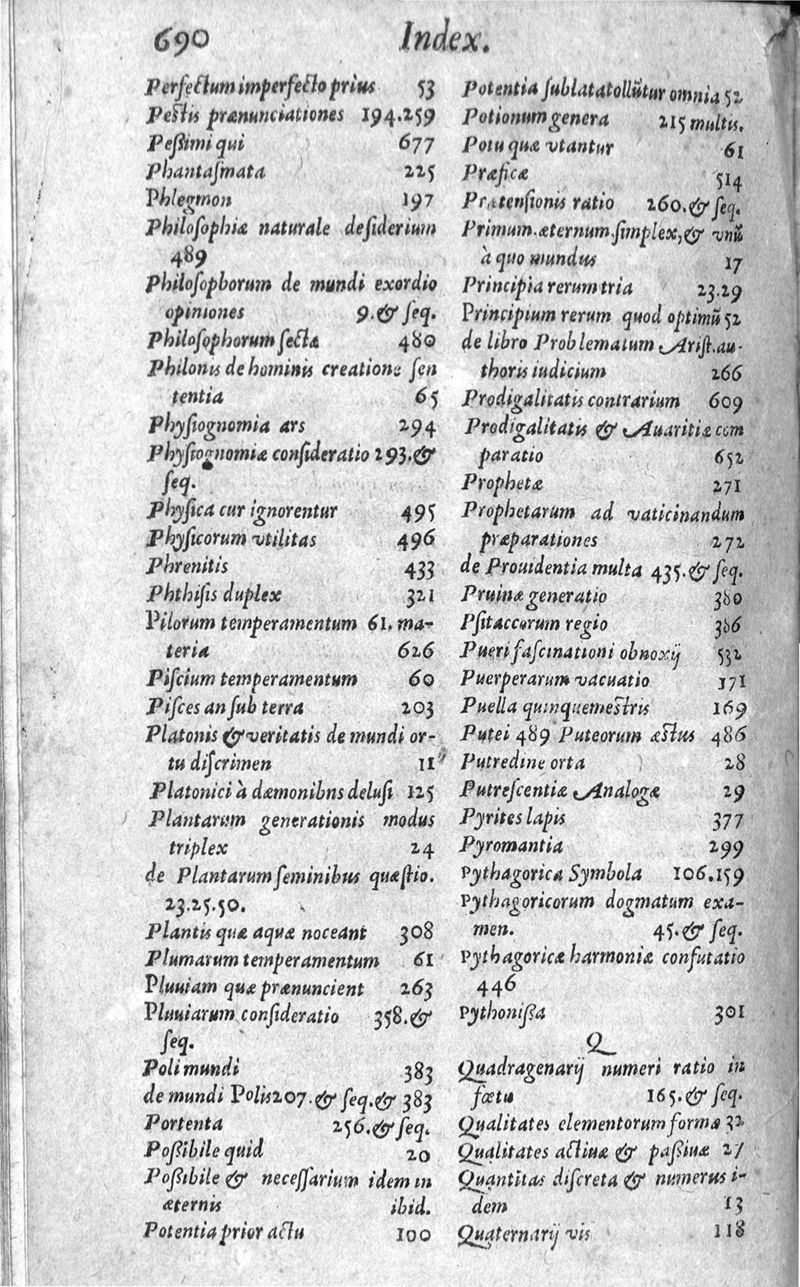 690 Index.
Perfectum imperfecto prius 53
Pestis prænunciationes 194.259
Peßimi qui 677
Phantaſmata 225
Phlegmon 197
Philoſophiæ naturale deſiderium
489
Philoſophorum de mundi exordio
opiniones 9.& ſeq.
Philoſophorum ſectæ 480
Philonis de hominis creatione ſen
tentia 65
Phyſiognomia ars 294
Phyſiognomiæ conſideratio 293.&
ſeq.
Phyſica cur ignorentur 495
Phyſicorum vtilitas 496
Phrenitis 433
Phthiſis duplex 321
Pilorum temperamentum 61. ma-
teria 626
Piſcium temperamentum 60
Piſces an ſub terra 203
Platonis & veritatis de mundi or-
tu diſcrimen 11
Platonici à dæmonibns deluſi 125
Plantarum generationis modus
triplex 24
de Plantarum ſeminibus quæſtio.
23.25.50.
Plantis quæ aquæ noceant 308
Plumarum temperamentum 61
Pluuiam quæ prænuncient 263
Pluuiarum conſideratio 358.&
ſeq.
Poli mundi 383
de mundi Polis 207.& ſeq.& 383
Portenta 256.& ſeq.
Poßibile quid 20
Poßibile & neceſſarium idem in
æternis ibid.
Potentia prior actu 100
Potentia ſublata tollūtur omnia 52
Potionum genera 215 multis.
Potu quæ vtantur 61
Præficæ 514
Prætenſionis ratio 260.& ſeq.
Primum.æternum.ſimplex,& vnū
à quo mundus 17
Principia rerum tria 23.29
Principium rerum quod optimū 52
de libro Problematum Ariſt.au-
thoris iudicium 266
Prodigalitatis contrarium 609
Prodigalitatis & Auaritiæ com
paratio 652
Prophetæ 271
Prophetarum ad vaticinandum
præparationes 272
de Prouidentia multa 435.& ſeq.
Pruinæ generatio 380
Pſitaccorum regio 386
Pueri faſcinationi obnoxij 532
Puerperarum vacuatio 171
Puella quinquemestris 169
Putei 489 Puteorum æstus 486
Putredine orta 28
Putreſcentiæ Analogæ 29
Pyrites lapis 377
Pyromantia 299
Pythagorica Symbola 106.159
Pythagoricorum dogmatum exa-
men. 45.& ſeq.
Pythagoricæ harmoniæ confutatio
446
Pythonißa 301
Q
Quadragenarij numeri ratio in
fœtu 165.& ſeq.
Qualitates elementorum formæ 32
Qualitates actiuæ & paßiuæ 27
Quantitas diſcreta & numerus i-
dem 13
Quaternarij vis 118